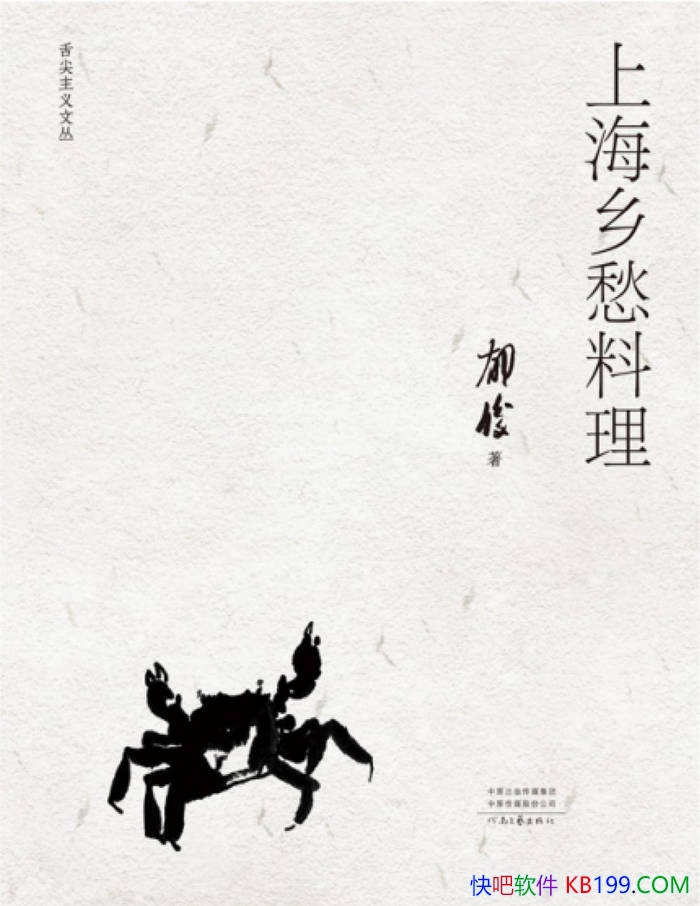 上海乡愁料理
舌尖主义文丛
郁俊
著
中原出版传媒集团
中原传媒股份公司
河南文艺出版社
快吧软件 KB199.COM